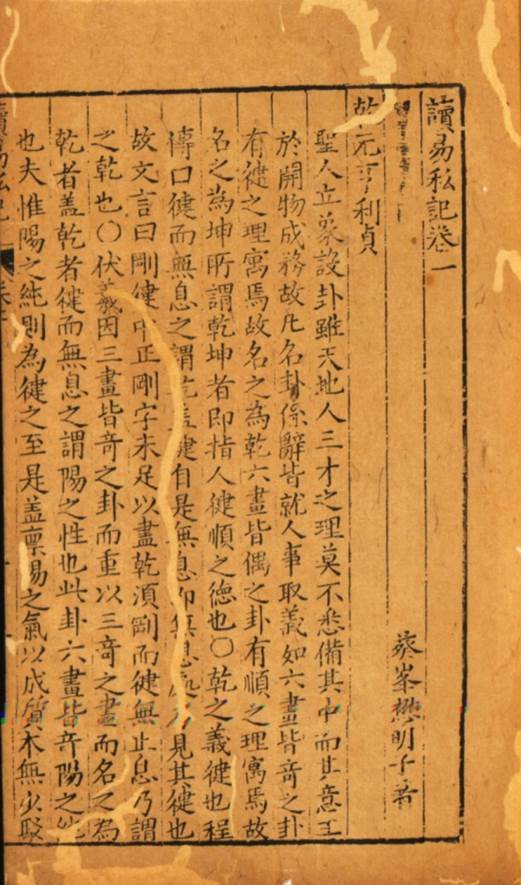 讀易私記卷一
蔡峯懋明子著
乾元亨利貞
聖人立象設卦雖天地人三才之理莫不悉備其中而其意主
於開物成務故凡名卦係辭皆就人事取義如六畫皆竒之卦
有徤之理寓焉故名之為乾六畫皆偶之卦有順之理寓焉故
名之為坤所謂乾坤者即指人徤順之德也〇乾之義徤也程
傳曰徤而無息之謂乾盖徤自是無息即無息處方見其徤也
故文言曰剛徤中正剛字未足以盡乾湏剛而徤無止息乃謂
之乾也〇伏羲因三畫皆竒之卦而重以三竒之畫而名之為
乾者盖乾者徤而無息之謂陽之性也此卦六畫皆竒陽之純
也夫惟陽之純則為徤之至是盖禀陽之氣以成質本無少駁
讀易私記